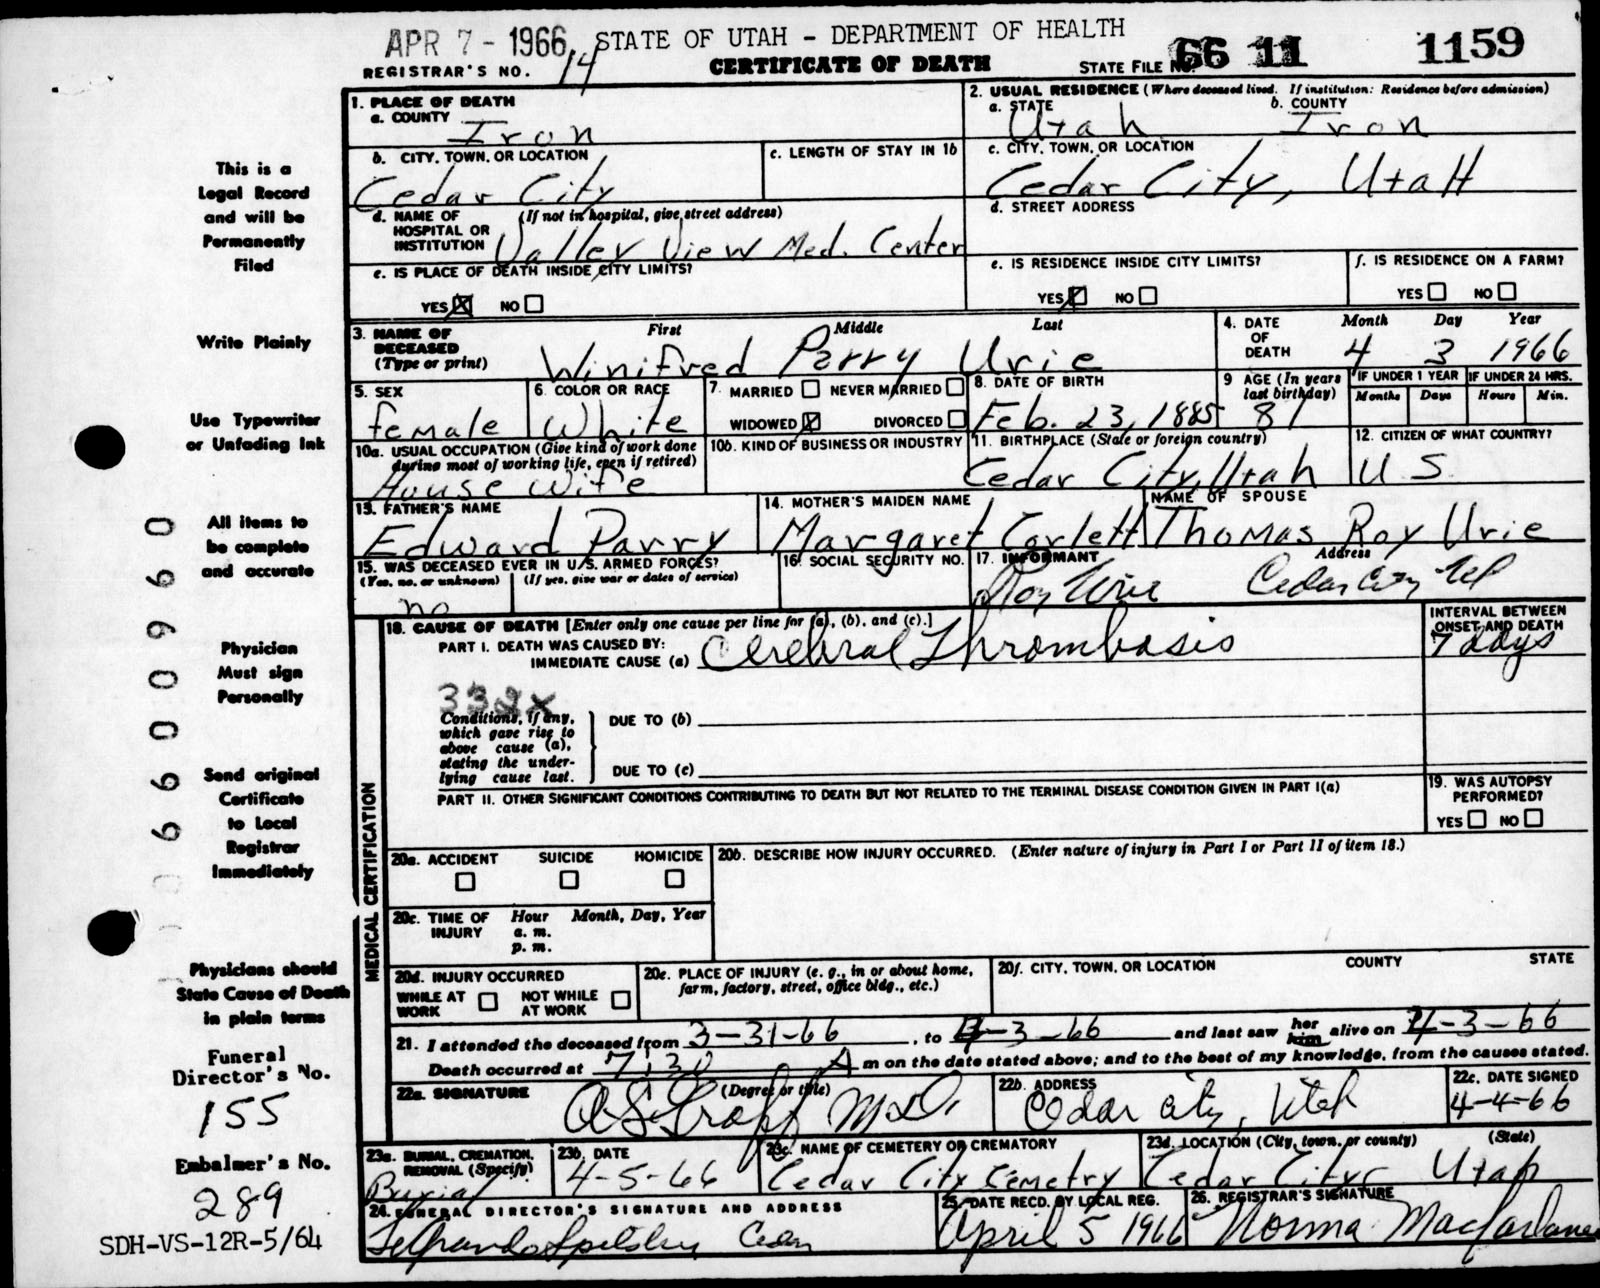 APR 7 - 1966 STATE OF UTAH - DEPARTMENT OF HEALTH
REGISTRAR'S NO. 14 CERTIFICATE OF DEATH STATE FILE NO. 66 11 1159
1. PLACE OF DEATH
a. COUNTY Iron
2. USUAL RESIDENCE (Where deceased lived. If institution: Residence before admission)
a. STATE Utah b. COUNTY Iron
b. CITY, TOWN, OR LOCATION Cedar City
c. LENGTH OF STAY IN 1b
c. CITY, TOWN, OR LOCATION Cedar City, Utah
d. NAME OF HOSPITAL OR INSTITUTION (If not in hospital, give street address) Valley View Med. Center
d. STREET ADDRESS
e. IS PLACE OF DEATH INSIDE CITY LIMITS?
YES X NO
e. IS RESIDENCE INSIDE CITY LIMITS?
YES NO
f. IS RESIDENCE ON A FARM?
YES NO
3. NAME OF DECEASED (Type or print) First Middle Last
Winifred Parry Urie
4. DATE OF DEATH Month Day Year
4 3 1966
5. SEX female
6. COLOR OR RACE White
7. MARRIED NEVER MARRIED
WIDOWED X DIVORCED
8. DATE OF BIRTH Feb. 23, 1885
9 AGE (In years last birthday) 81
IF UNDER 1 YEAR Months Days
IF UNDER 24 HRS. Hours Min.
10a. USUAL OCCUPATION (Give kind of work done during most of working life, even if retired)
House Wife
10b. KIND OF BUSINESS OR INDUSTRY
11. BIRTHPLACE (State or foreign country) Cedar City, Utah
12. CITIZEN OF WHAT COUNTRY? U S
13. FATHER'S NAME Edward Parry
14. MOTHER'S MAIDEN NAME Margaret Corlett
NAME OF SPOUSE Thomas Roy Urie
15. WAS DECEASED EVER IN U.S. ARMED FORCES?
(Yes, no, or unknown) (If yes, give war or dates of service)
no
16. SOCIAL SECURITY NO.
17. INFORMANT Address
Roy Urie Cedar City Ut
18. CAUSE OF DEATH [Enter only one cause per line for (a), (b), and (c).]
PART I. DEATH WAS CAUSED BY:
IMMEDIATE CAUSE (a) Cerebral Thrombosis
INTERVAL BETWEEN ONSET AND DEATH
7 days
332x
Conditions, if any, which gave rise to above cause (a), stating the underlying cause last.
DUE TO (b)
DUE TO (c)
PART II. OTHER SIGNIFICANT CONDITIONS CONTRIBUTING TO DEATH BUT NOT RELATED TO THE TERMINAL DISEASE CONDITION GIVEN IN PART I(a)
19. WAS AUTOPSY PERFORMED?
YES NO
MEDICAL CERTIFICATION
20a. ACCIDENT SUICIDE HOMICIDE
20b. DESCRIBE HOW INJURY OCCURRED. (Enter nature of injury in Part I or Part II of item 18.)
20c. TIME OF INJURY Hour Month, Day, Year
a. m.
p. m.
20d. INJURY OCCURRED
WHILE AT WORK NOT WHILE AT WORK
20e. PLACE OF INJURY (e. g., in or about home, farm, factory, street, office bldg., etc.)
20f. CITY, TOWN, OR LOCATION COUNTY STATE
21. I attended the deceased from 3-31-66, to 4-3-66 and last saw her him alive on 4-3-66
Death occurred at 7:30 A m on the date stated above; and to the best of my knowledge, from the causes stated.
22a. SIGNATURE (Degree or title)
22b. ADDRESS Cedar City, Utah
22c. DATE SIGNED 4-4-66
23a. BURIAL, CREMATION, REMOVAL (Specify) Burial
23b. DATE 4-5-66
23c. NAME OF CEMETERY OR CREMATORY Cedar City Cemetry
23d. LOCATION (City, town, or county) (State)
Cedar City Utah
24. FUNERAL DIRECTOR'S SIGNATURE AND ADDRESS
Cedar
25. DATE RECD. BY LOCAL REG. April 5 1966
26. REGISTRAR'S SIGNATURE Norma Macfarlane
This is a
Legal Record
and will be
Permanently
Filed
Write Plainly
Use Typewriter
or Unfading Ink
All items to
be complete
and accurate
Physician
Must sign
Personally
Send original
Certificate
to Local
Registrar
Immediately
Physicians should
State Cause of Death
in plain terms
Funeral
Director's No.
155
Embalmer's No.
289
SDH-VS-12R-5/64